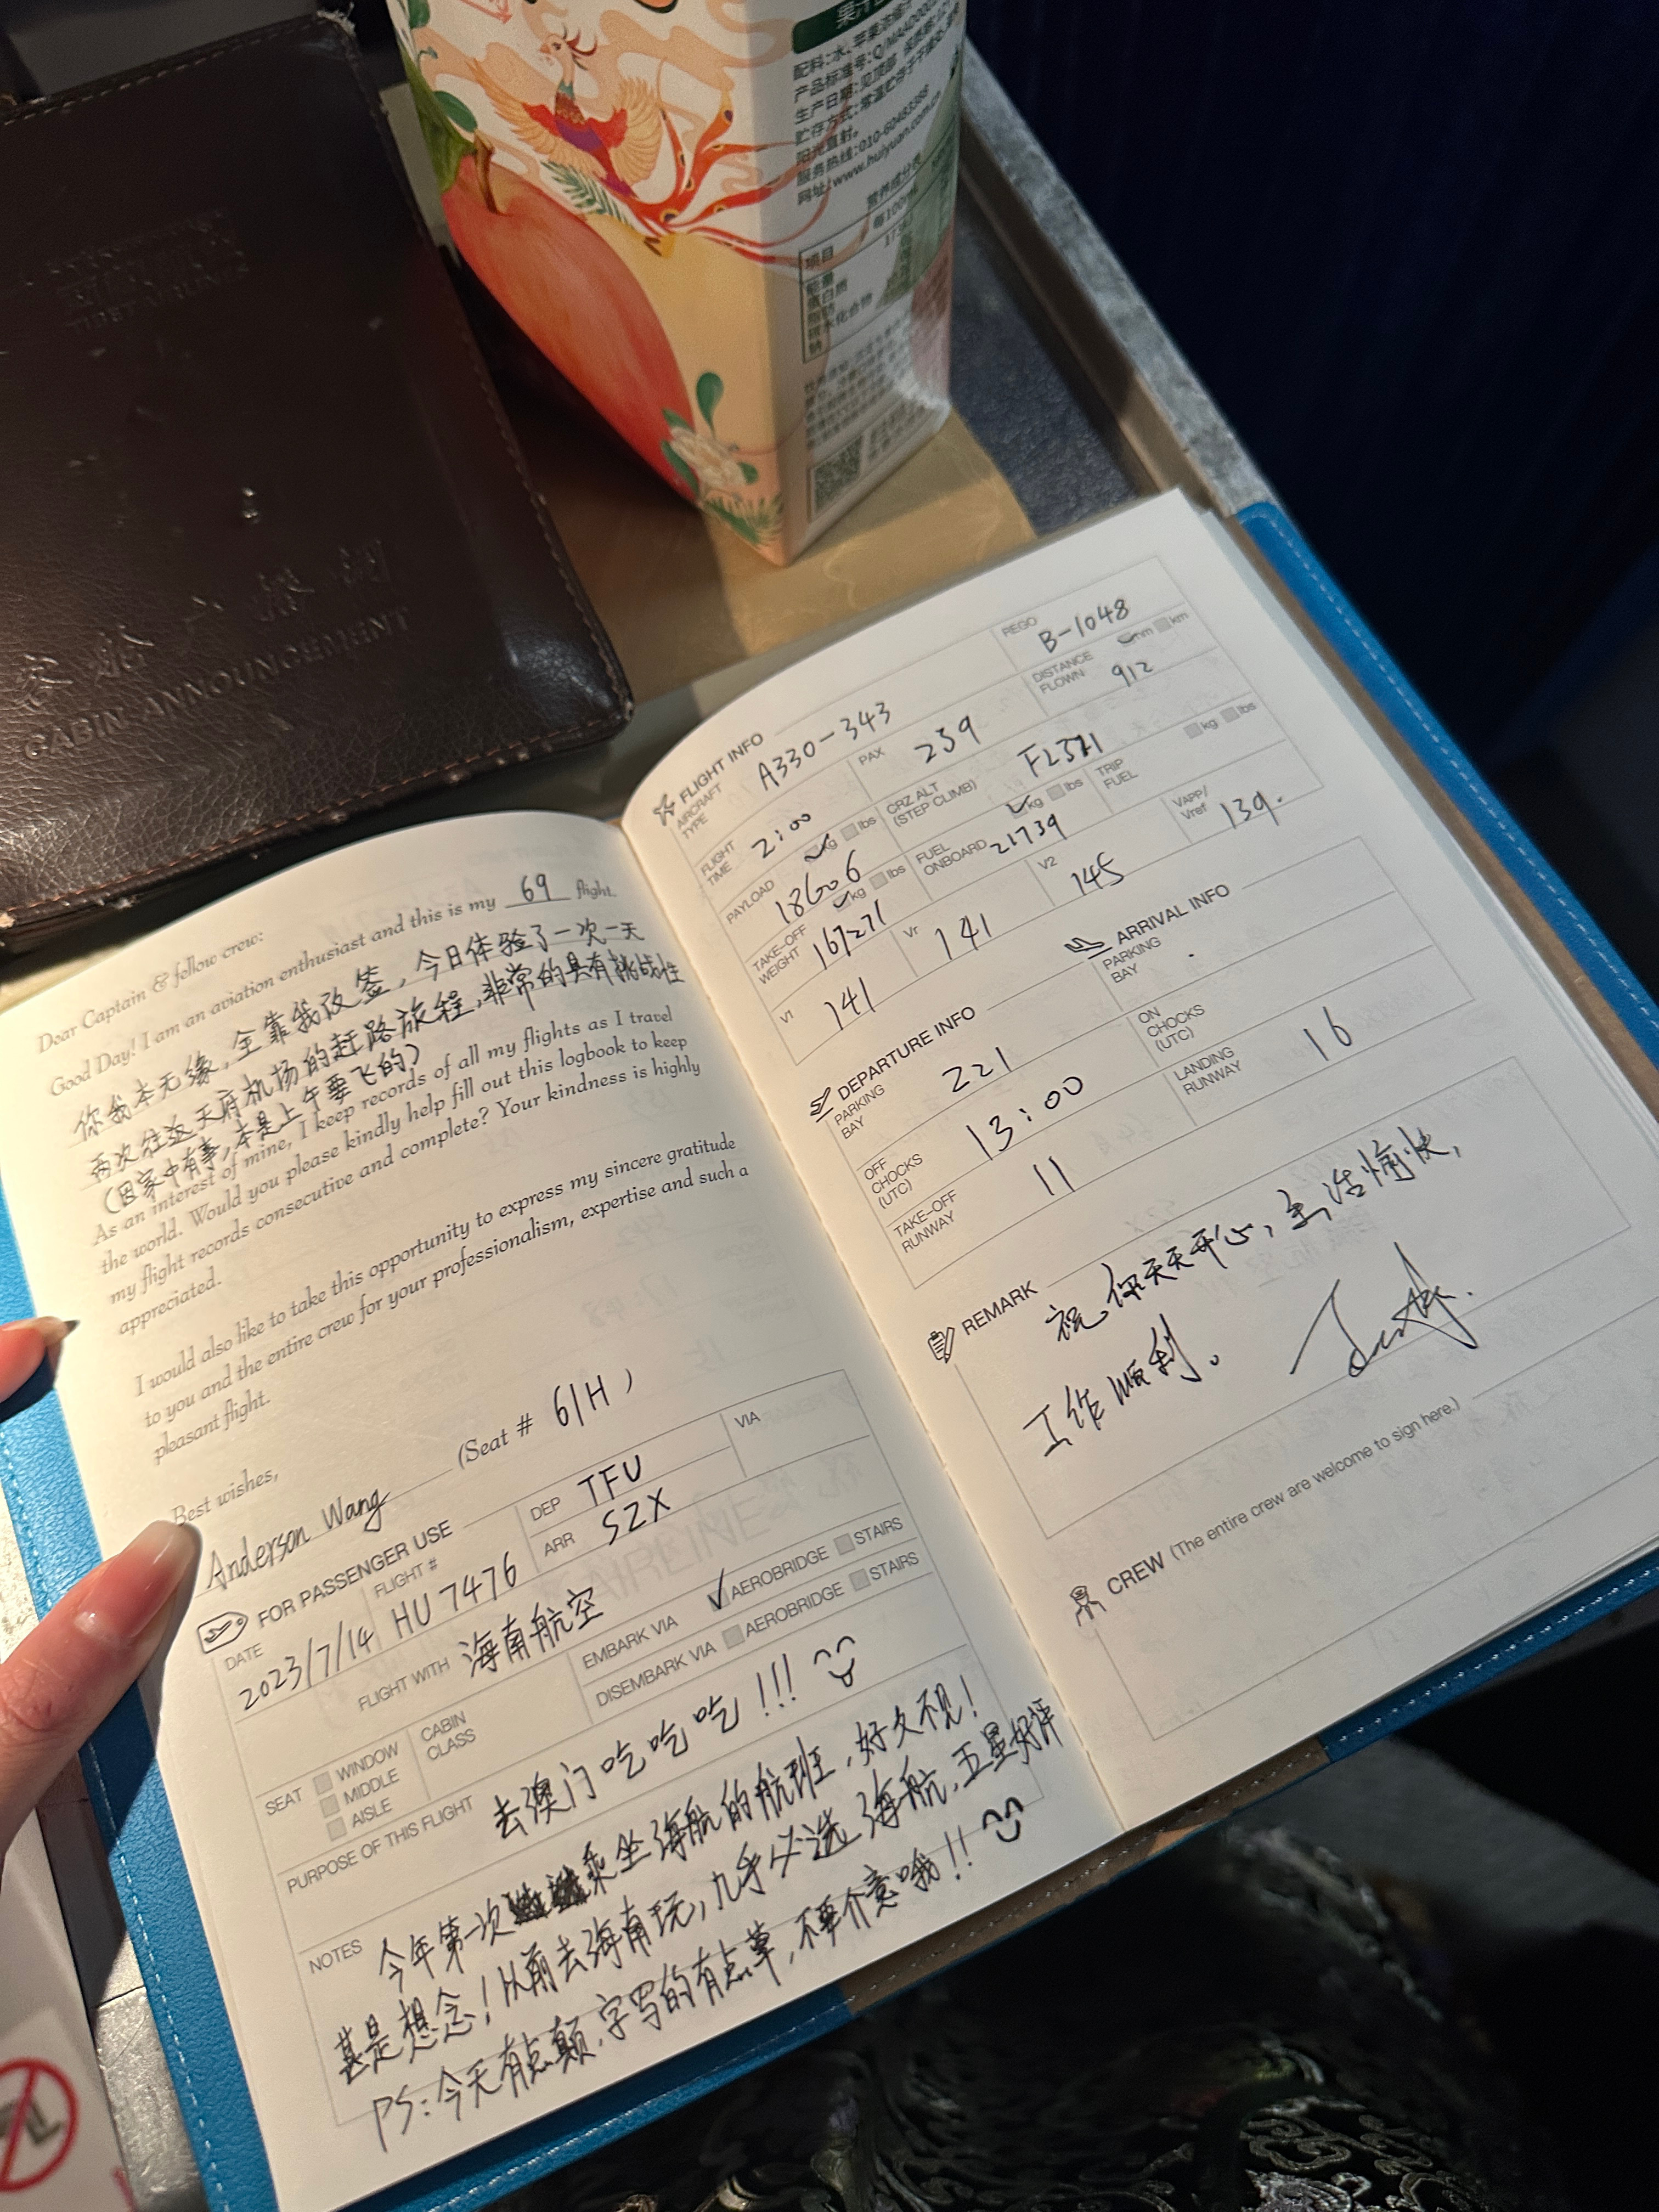 配料:水、苹果浓缩汁
产品标准号:Q/MA4D00
生产日期:见顶部
贮存方式:常温贮存于干燥
阳光直射。
服务热线:010-60483388
网址:www.huiyuan.com.cn
营养成分表
项目
能量
蛋白质
脂肪
碳水化合物
钠
客舱广播词
CABIN ANNOUNCEMENT
Dear Captain & fellow crew:
Good Day! I am an aviation enthusiast and this is my 69 flight.
你我本无缘,全靠我改签,今日体验了一次一天
两次往返天府机场的赶路旅程,非常的具有挑战性
(因家中有事,本是上午要飞的)
As an interest of mine, I keep records of all my flights as I travel
the world. Would you please kindly help fill out this logbook to keep
my flight records consecutive and complete? Your kindness is highly
appreciated.
I would also like to take this opportunity to express my sincere gratitude
to you and the entire crew for your professionalism, expertise and such a
pleasant flight.
Best wishes,
Anderson Wang (Seat # 61H)
FOR PASSENGER USE
DATE 2023/7/14
FLIGHT # HU7476
DEP TFU
ARR SZX
VIA
FLIGHT WITH 海南航空
EMBARK VIA AEROBRIDGE STAIRS
DISEMBARK VIA AEROBRIDGE STAIRS
SEAT WINDOW
MIDDLE
AISLE
CABIN CLASS
PURPOSE OF THIS FLIGHT 去澳门吃吃吃!!!
NOTES 今年第一次乘坐海航的航班,好久不见!
甚是想念!从前去海南玩,几乎必选海航,五星好评
PS:今天有点颠,字写的有点草,不要介意哦!!
FLIGHT INFO
AIRCRAFT TYPE A330-343
REGO B-1048
FLIGHT TIME 2:00
PAX 259
DISTANCE FLOWN nm km 912
PAYLOAD kg lbs 18606
CRZ ALT (STEP CLIMB) FL371
TAKE-OFF WEIGHT kg lbs 167271
FUEL ONBOARD kg lbs 21739
TRIP FUEL kg lbs
V1 141
Vr 141
V2 145
VAPP/Vref 139.
DEPARTURE INFO
PARKING BAY 221
OFF CHOCKS (UTC) 13:00
TAKE-OFF RUNWAY 11
ARRIVAL INFO
PARKING BAY
ON CHOCKS (UTC)
LANDING RUNWAY 16
REMARK
祝你天天开心,生活愉快,
工作顺利。
CREW (The entire crew are welcome to sign here.)